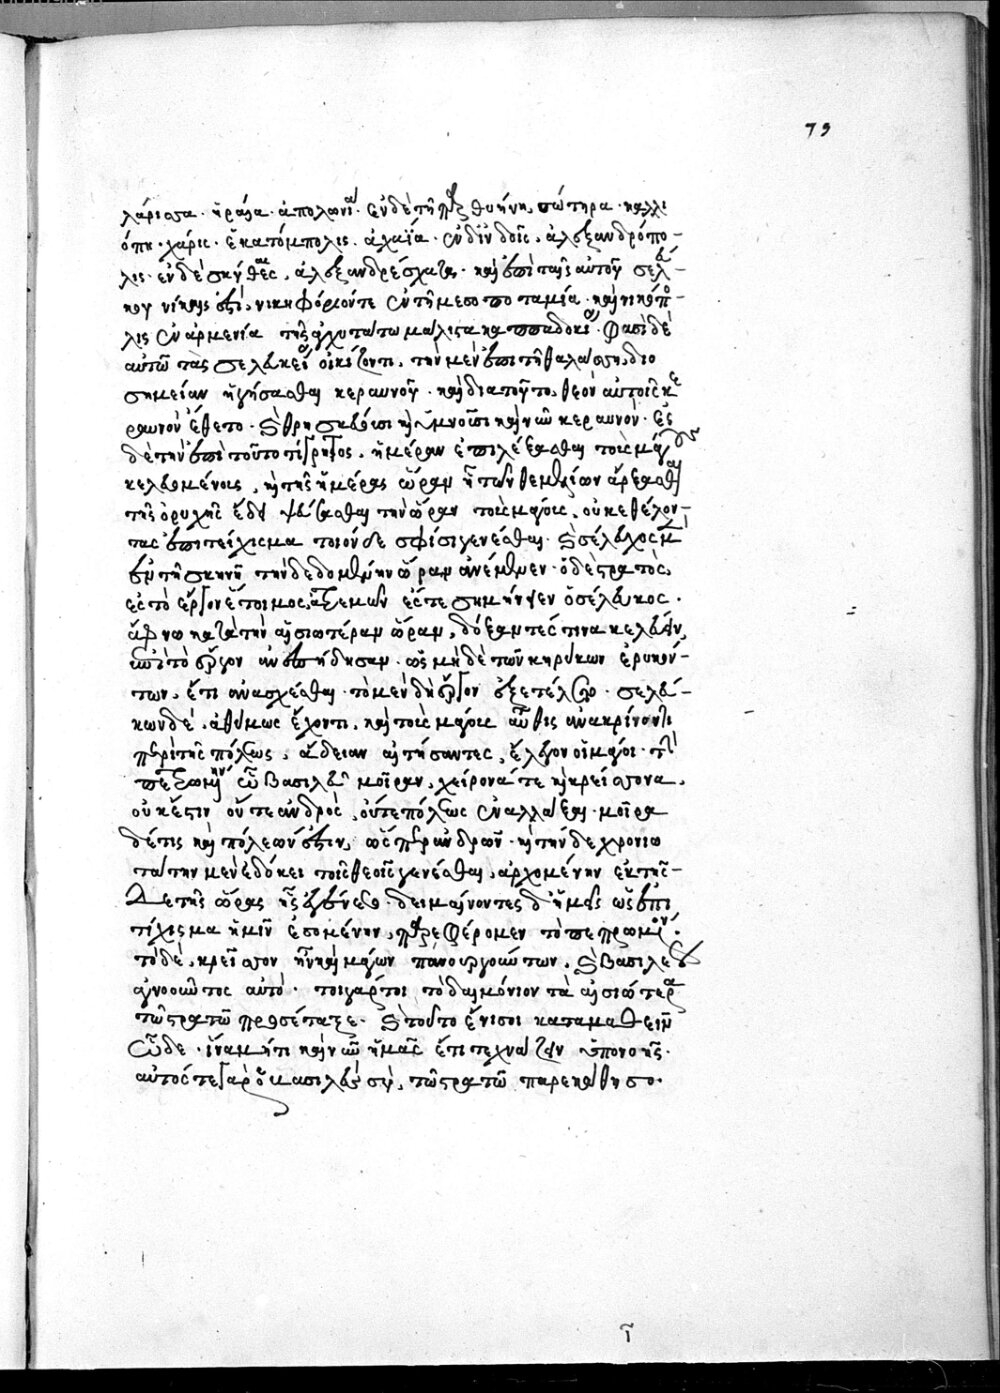 79
λάρισσα· ἡραία· ἀπολωνία· ἐν δὲ τῇ παρθυήνη, σώτηρα· καλλι
όπη· χάρις· ἑκατόμπολις· ἀχαΐα· ἐν δ' ἰνδοῖς, ἀλεξανδρόπο-
λις· ἐν δὲ σκύθαις, ἀλεξανδρέσχατα· καὶ ἐπὶ ταῖς αὐτοῦ σελεύ-
κου νίκαις ἐστὶ, νικηφόριόν τε ἐν τῇ μεσοποταμία· καὶ νικόπο-
λις ἐν ἀρμενία τῆς ἀγχυτάτω μάλιστα καππαδοκίας· φασὶ δὲ
αὐτῶ τὰς σελευκείας οἰκίζοντι, τὴν μὲν ἐπὶ τῇ θαλάσση, διο
σημείαν ἡγήσασθαι κεραυνοῦ· καὶ διὰ τοῦτο, θεὸν αὐτοῖς κε
ραυνὸν ἔθετο· καὶ θρησκεύουσι καὶ ὑμνοῦσι καὶ νῦν κεραυνόν· ἐς
δὲ τὴν ἐπὶ τοῦ τίγρητος, ἡμέραν ἐπιλέξασθαι τοὺς μάγους
κελευομένους, καὶ τῆς ἡμέρας ὥραν ᾗ τῶν θεμελίων ἄρξασθαι
τῆς ὀρυχῆς ἔδει ψεύσασθαι τὴν ὥραν τοὺς μάγους, οὐκ ἐθέλον-
τας ἐπιτείχισμα τοιόνδε σφίσι γενέσθαι· καὶ σέλευκος μὲν
ἐν τῇ σκηνῇ τὴν δεδομένην ὥραν ἀνέμενεν· ὁ δὲ στρατὸς,
ἐς τὸ ἔργον ἕτοιμος, ἀτρεμῶν ἔς τε σημήνειεν ὁ σέλευκος·
ἄφνω κατὰ τὴν αἰσιωτέραν ὥραν, δόξαντές τινα κελεύειν,
ἐπὶ τὸ ἔργον ἀνεπήδησαν· ὡς μηδὲ τῶν κηρύκων ἐρυκόν-
των, ἔτι ἀνασχέσθαι· τὸ μὲν δὴ ἔργον ἐξετέλεστο· σελεύ-
κω δὲ, ἀθύμως ἔχοντι, καὶ τοὺς μάγους αὖθις ἀνακρίνοντι
περὶ τῆς πόλεως, ἄδειαν αἰτήσαντες, ἔλεγον οἱ μάγοι· τὴν
πεπρωμένην ὦ βασιλεῦ μοῖραν, χείρονά τε καὶ κρείσσονα,
οὐκ ἔστιν οὔτε ἀνδρὸς, οὔτε πόλεως ἐναλλάξαι· μοῖρα
δέ τις καὶ πόλεών ἐστιν, ὥσπερ ἀνδρῶν· καὶ τήνδε χρονιω
τάτην μὲν ἐδόκει τοῖς θεοῖς γενέσθαι, ἀρχομένην ἐκ τῆς-
δε τῆς ὥρας ἧς ἐγένετο· δειμαίνοντες δ' ἡμεῖς ὡς ἐπι
τείχισμα ἡμῖν ἐσομένην, παρεφέρομεν τὸ πεπρωμένον·
τὸ δὲ, κρεῖσσον ἦν καὶ μάγων πανουργούντων, καὶ βασιλέως
ἀγνοοῦντος αὐτό· τοιγάρτοι τὸ δαιμόνιον τὰ αἰσιώτερα
τῶ στρατῶ προσέταξε· καὶ τοῦτο ἔνι σοι καταμαθεῖν
ὧδε· ἵνα μή τι καὶ νῦν ἡμᾶς ἔτι τεχνάζειν ὑπονοῆς·
αὐτός τε γὰρ ὁ βασιλεὺς σὺ, τῶ στρατῶ παρεκάθησο·